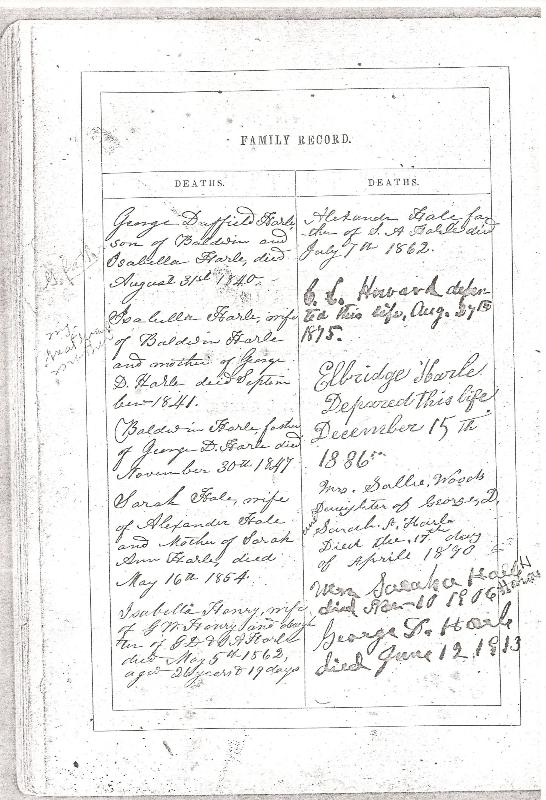 FAMILY RECORD.
DEATHS.
George Duffield Harle
son of Baldwin and
Isabella Harle, died
August 31st 1840.
Isabella Harle, wife
of Baldwin Harle
and mother of George
D. Harle died Septem
ber 1841.
Baldwin Harle, father
of George D. Harle died
November 30th 1847
Sarah Hale, wife
of Alexander Hale
and Mother of Sarah
Ann Harle, died
May 16th 1854.
Isabella Henry, wife
of G W Henry and daugh
ter of G D & S A Harle
died May 5th 1862,
aged years & 19 days
DEATHS.
Alexander Hale fa
ther of S. A Harle died
July 7th 1862.
C. C. Howard depar-
ted this life, Aug. 27th
1875.
Elbridge Harle
Depared this life
December 15th
1886
Mrs. Sallie, Woods
Daughter of George, D,
and Sarah A, Harle
Died the, 17th day
of Aprile 1890
Harle
died Nov 10 1906
George D. Harle
died June 12 1913